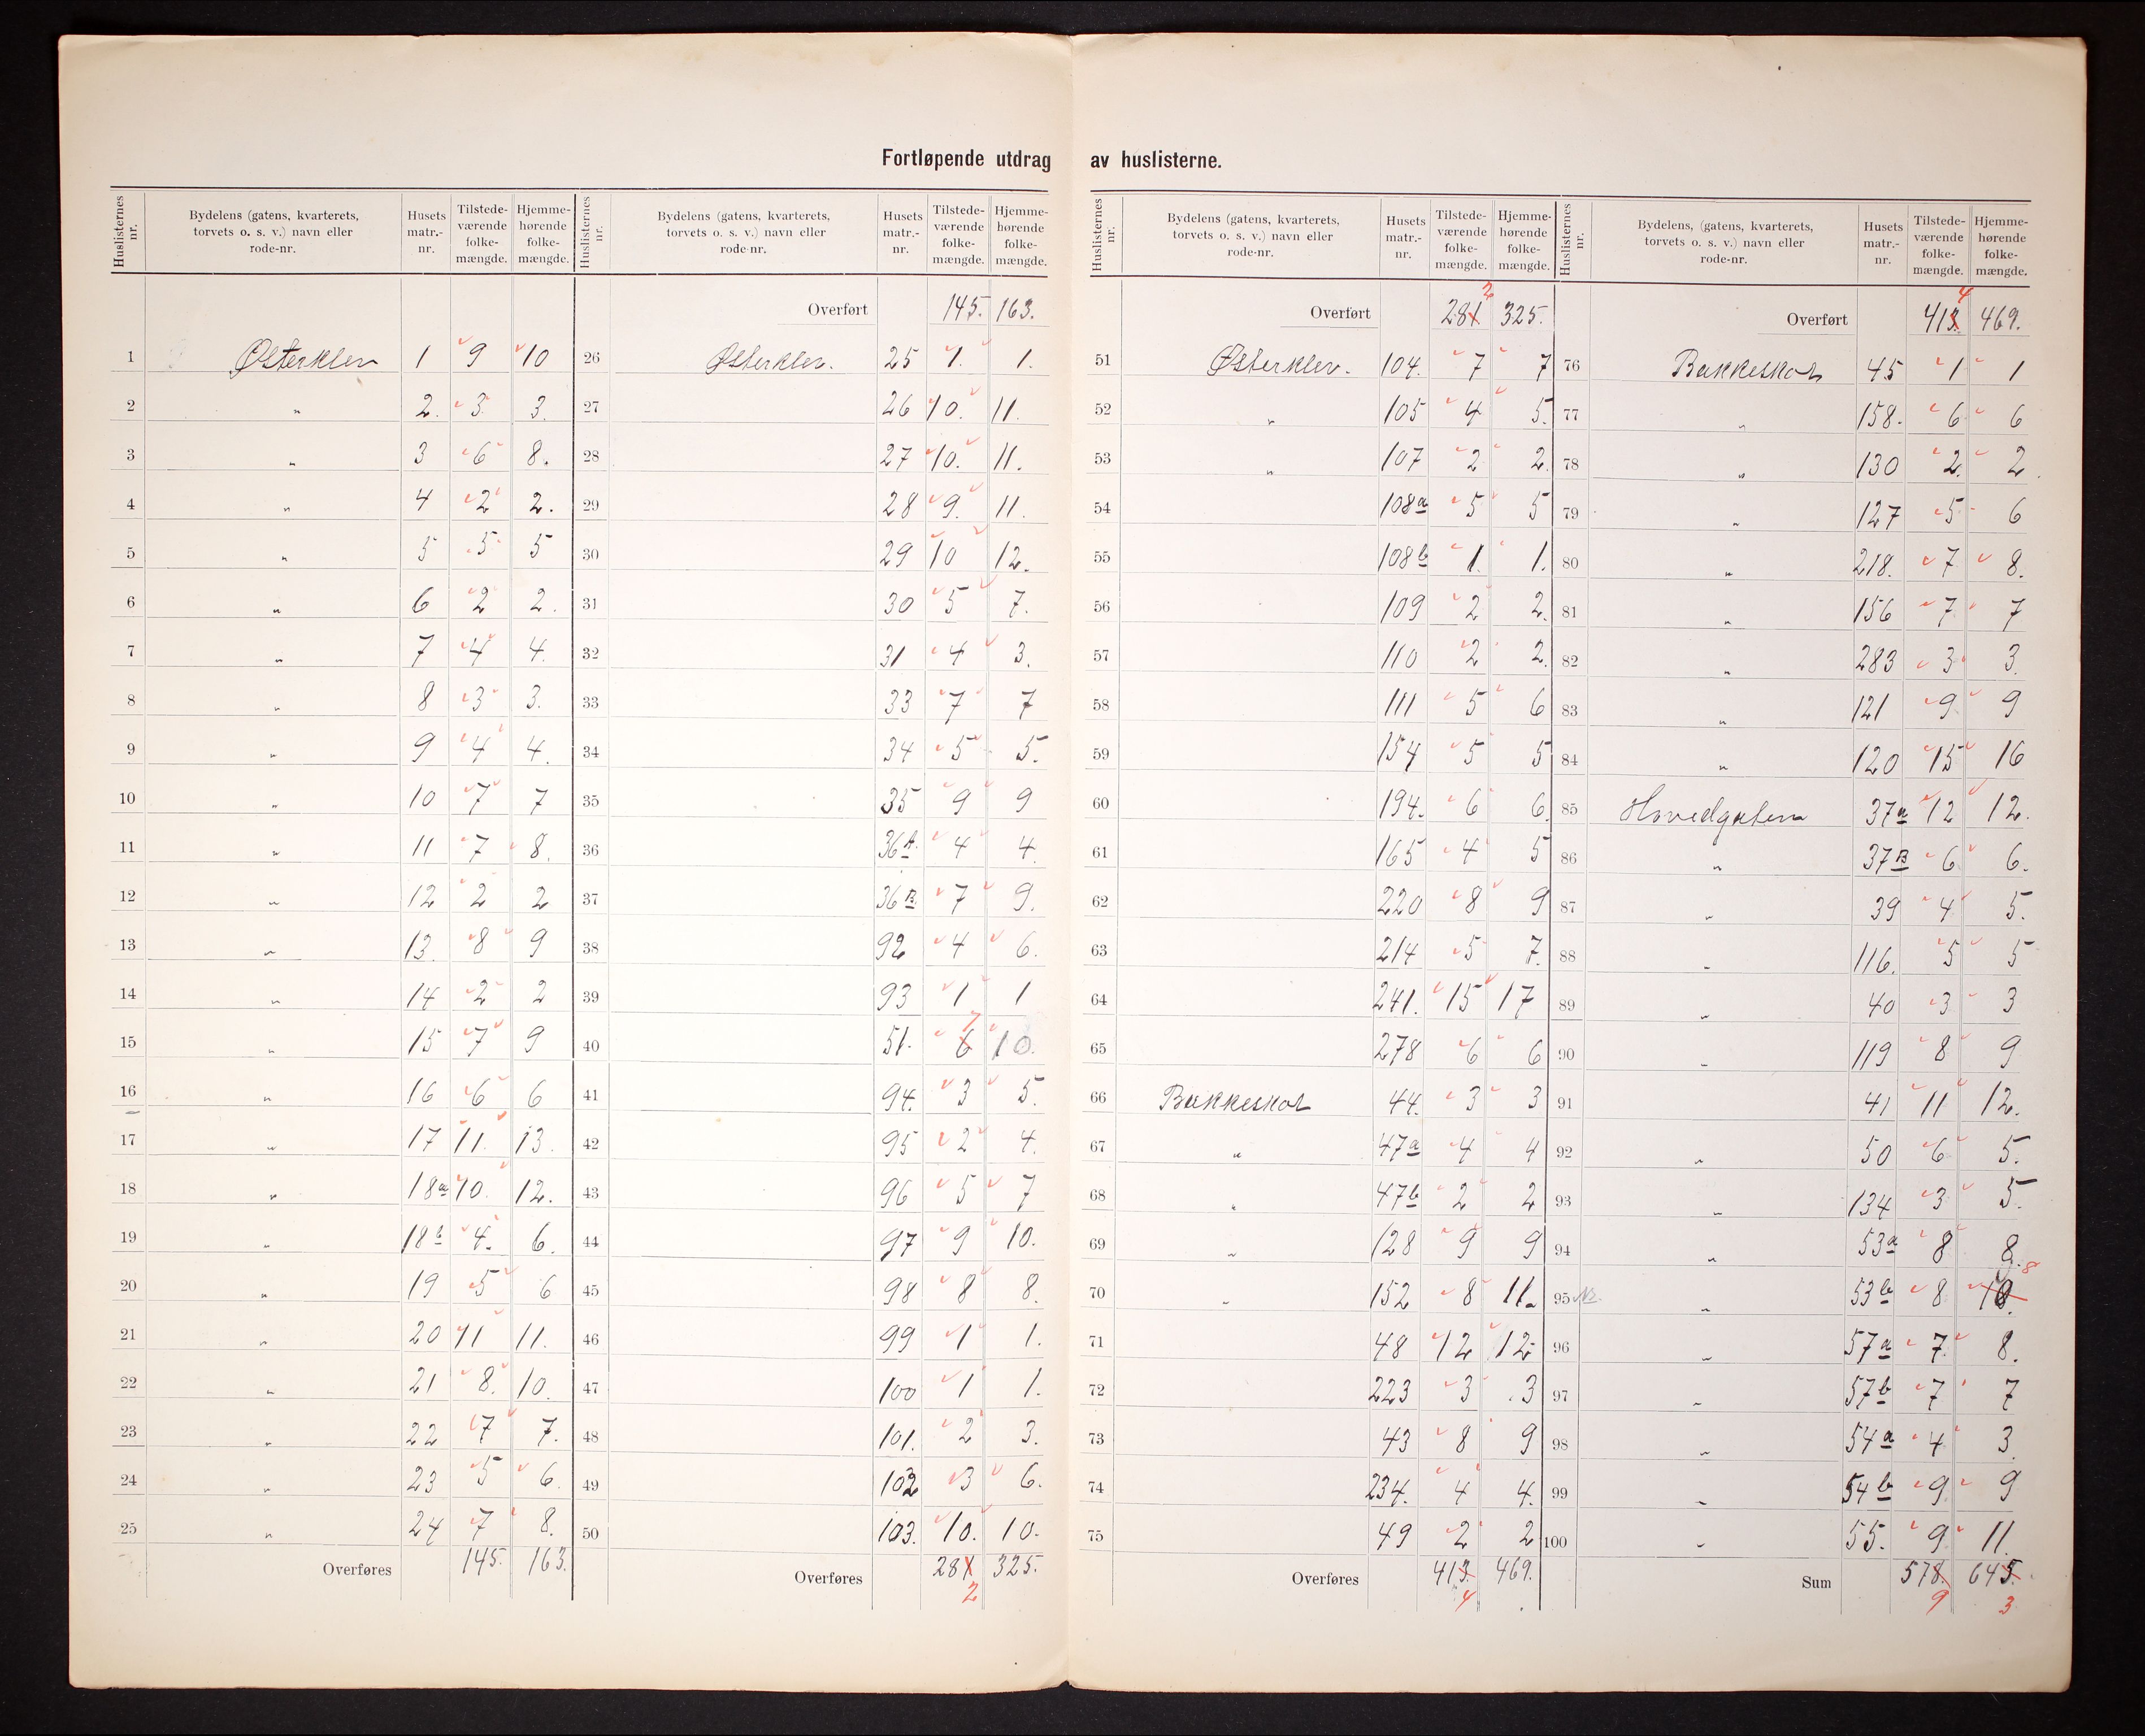 Fortløpende utdrag av huslisterne.
Huslisternes nr. Bydelens (gatens, kvarterets, torvets o. s. v.) navn eller rode-nr. Husets matr.-nr. Tilstede-værende folke-mængde. Hjemme-hørende folke-mængde.
1 Østerklev 1 9 10
2 " 2. 3 3.
3 " 3 6 8.
4 " 4 2 2.
5 " 5 5 5
6 " 6 2 2.
7 " 7 4 4.
8 " 8 3 3.
9 " 9 4 4.
10 " 10 7 7
11 " 11 7 8.
12 " 12 2 2
13 " 13. 8 9
14 " 14 2 2
15 " 15 7 9
16 " 16 6 6
17 " 17 11. 13.
18 " 18a 10. 12.
19 " 18b 4. 6.
20 " 19 5 6
21 " 20 11 11.
22 " 21 8. 10.
23 " 22 7 7.
24 " 23 5 6.
25 " 24 7 8.
Overføres 145. 163.
Huslisternes nr. Bydelens (gatens, kvarterets, torvets o. s. v.) navn eller rode-nr. Husets matr.-nr. Tilstede-værende folke-mængde. Hjemme-hørende folke-mængde.
Overført 145. 163.
26 Østerklev. 25 1. 1.
27 26 10. 11.
28 27 10. 11.
29 28 9. 11.
30 29 10 12.
31 30 5 7.
32 31 4 3.
33 33 7 7
34 34 5 5.
35 35 9 9
36 36A. 4 4.
37 36B. 7 9.
38 92 4 6.
39 93 1 1
40 51. 6 7 10.
41 94. 3 5.
42 95 2 4.
43 96 5 7
44 97 9 10.
45 98 8 8.
46 99 1 1.
47 100 1 1.
48 101. 2 3.
49 102 3 6.
50 103. 10. 10.
Overføres 281 2 325.
Huslisternes nr. Bydelens (gatens, kvarterets, torvets o. s. v.) navn eller rode-nr. Husets matr.-nr. Tilstede-værende folke-mængde. Hjemme-hørende folke-mængde.
Overført 281 2 325.
51 Østerklev. 104. 7 7
52 " 105 4 5.
53 " 107 2 2.
54 108a 5 5
55 108b 1. 1.
56 109 2 2.
57 110 2 2.
58 111 5 6
59 154 5 5
60 194. 6 6.
61 165 4 5
62 220 8 9
63 214 5 7.
64 241. 15 17
65 278 6 6
66 Bakkeskot 44. 3 3
67 " 47a 4 4
68 " 47b 2 2
69 " 128 9 9
70 " 152 8 11.
71 48 12 12
72 223 3 3
73 43 8 9
74 234. 4 4.
75 49 2 2
Overføres 413. 4 469.
Huslisternes nr. Bydelens, (gatens, kvarterets, torvets o. s. v.) navn eller rode-nr. Husets matr.-nr. Tilstede-værende folke-mængde. Hjemme-hørende folke-mængde.
Overført 413. 4 469.
76 Bakkeskot 45 1 1
77 " 158. 6 6
78 " 130 2. 2
79 " 127 5 6
80 " 218. 7 8.
81 " 156 7 7
82 " 283 3 3.
83 " 121 9 9
84 " 120 15 16
85 Hovedgaten 37a 12 12.
86 " 37B 6 6.
87 " 39 4 5.
88 " 116. 5 5
89 " 40 3 3
90 " 119 8 9
91 41 11 12.
92 " 50 6 5.
93 " 134 3 5.
94 " 53a 8 8.
95 " 53b 8 10. 8
96 " 57a 7 8.
97 " 57b 7 7
98 " 54a 4 3.
99 " 54b 9 9
100 " 55. 9 11.
Sum 578. 9 645. 3